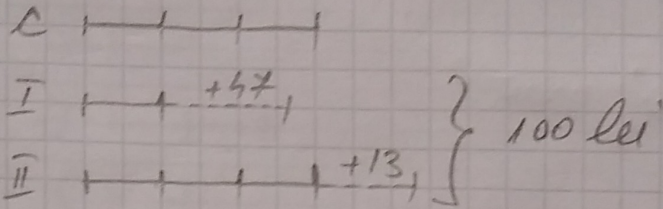 C
I +47
II +13
} 100 lei